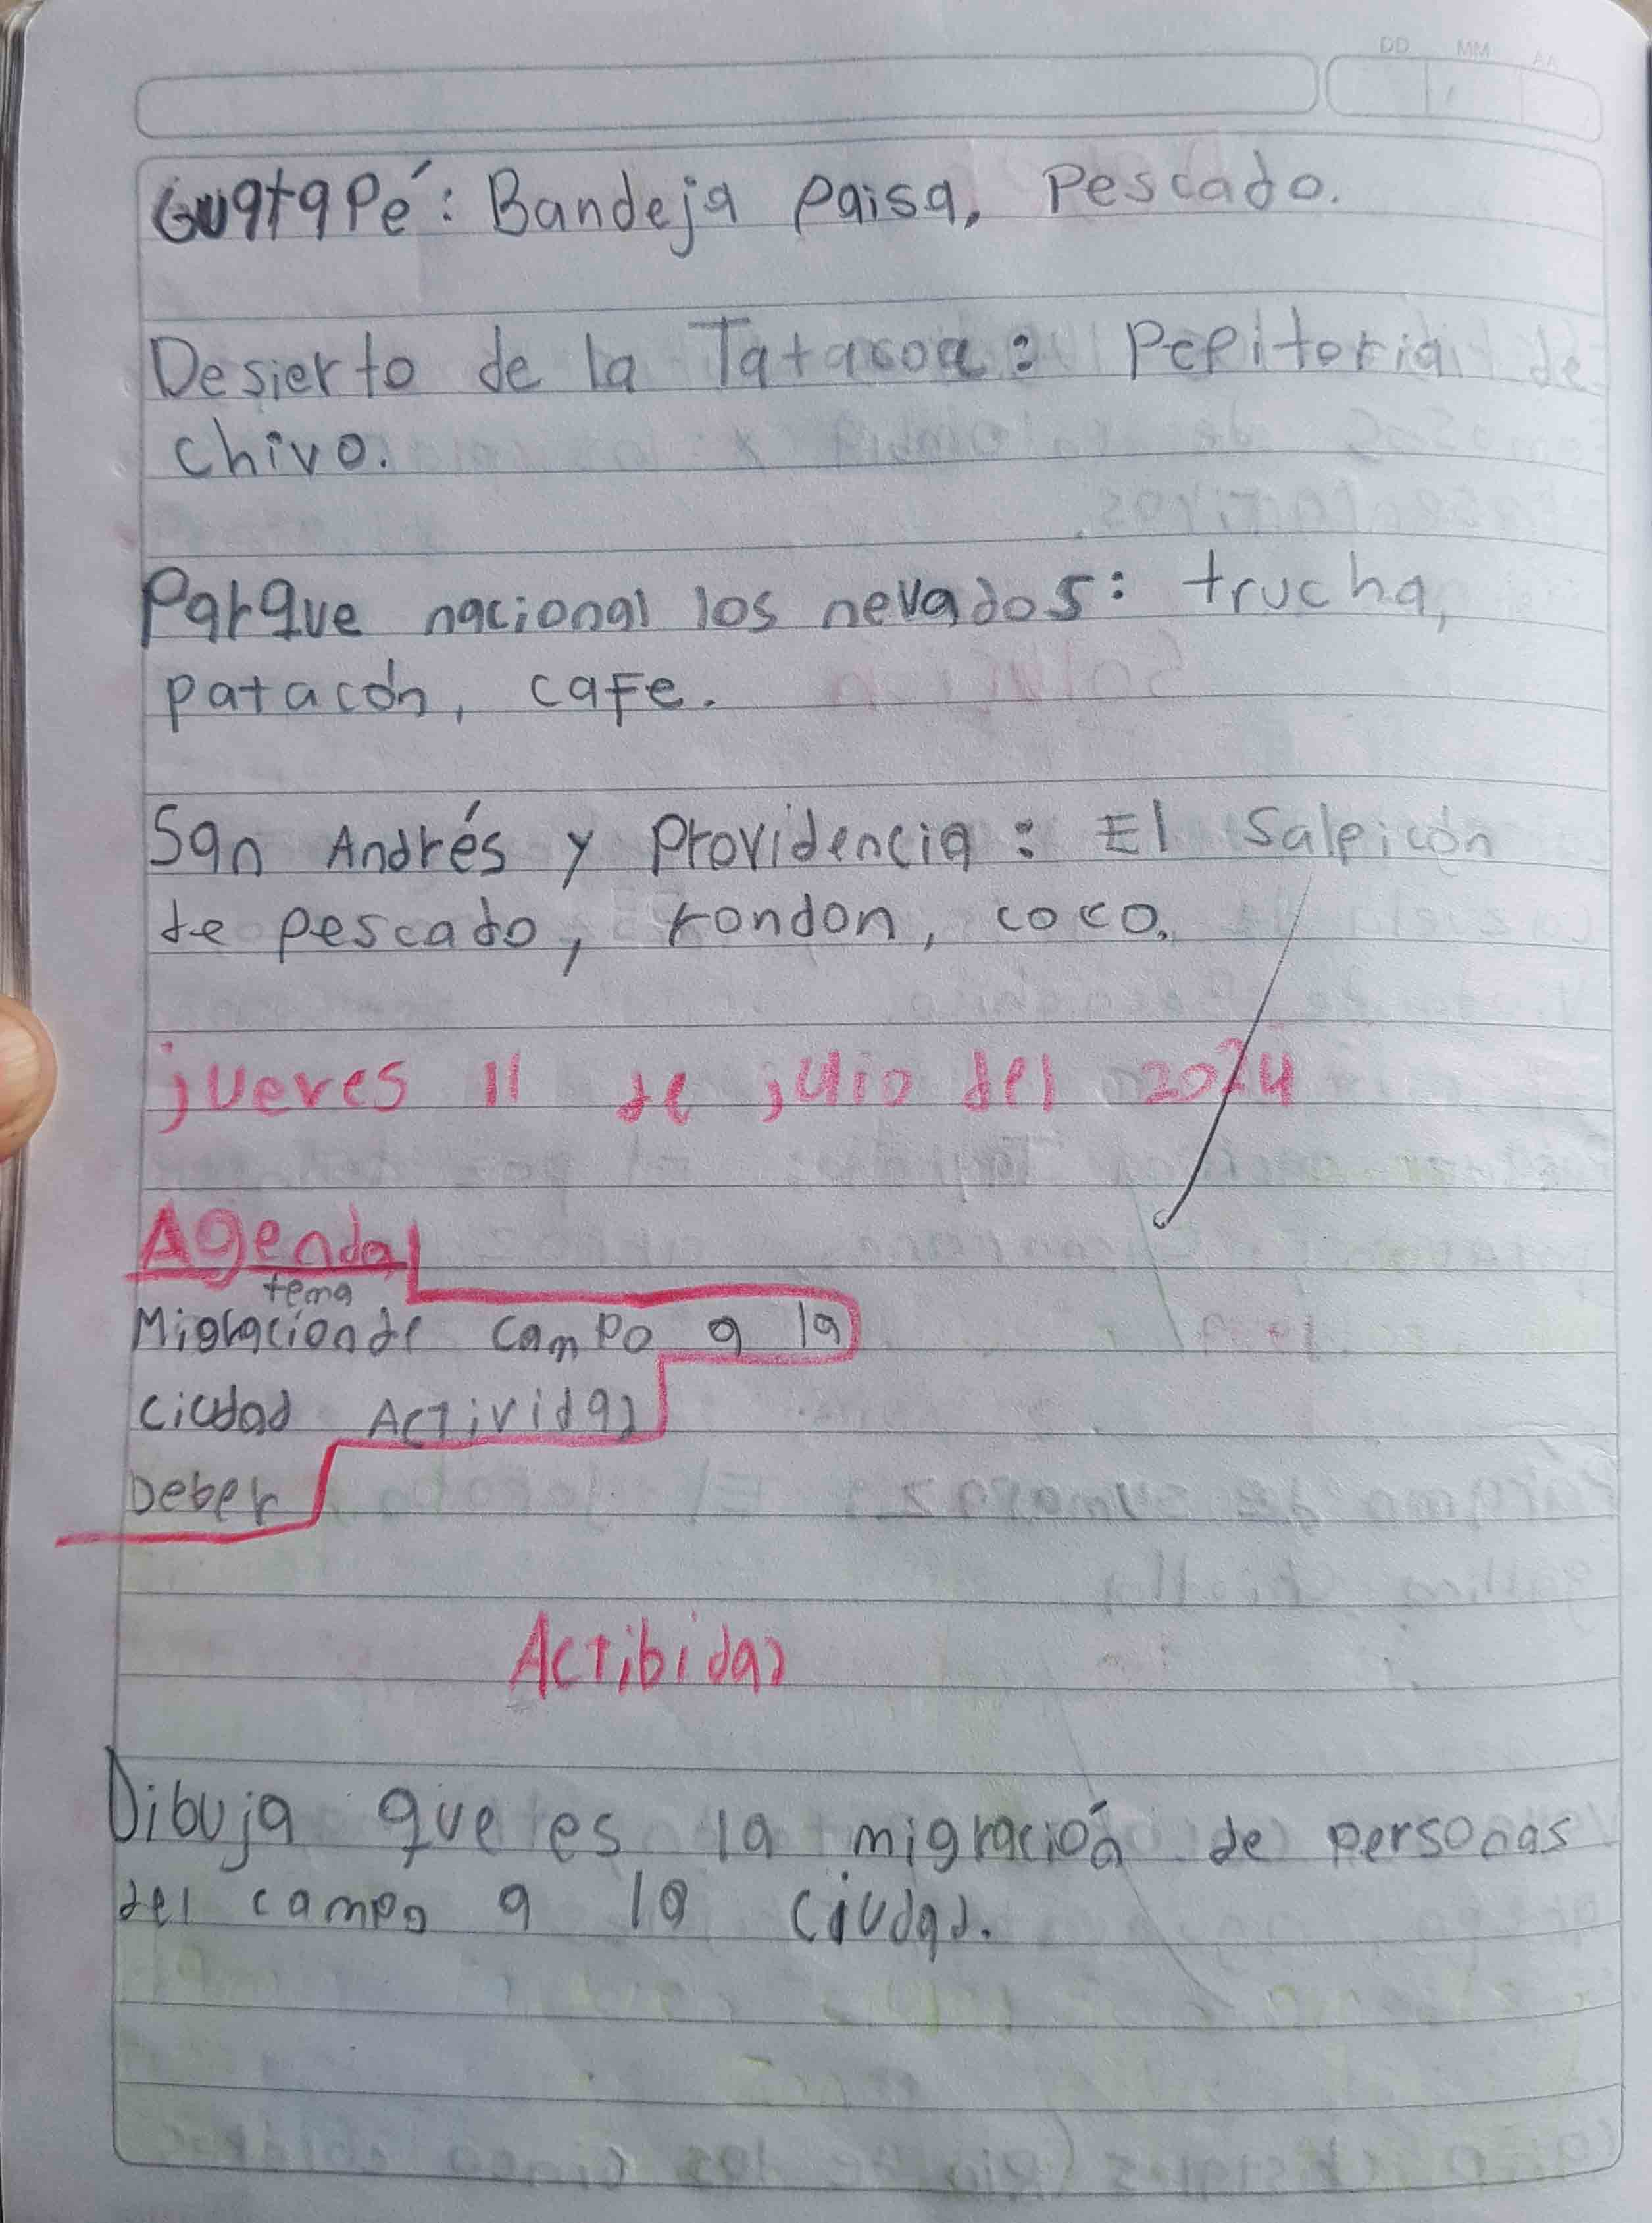 DD MM AA
Guatapé: Bandeja paisa, Pescado.
Desierto de la Tatacoa: Pepitoria de
chivo.
Parque nacional los nevados: trucha,
patacón, cafe.
San Andrés y Providencia: El Salpicón
de pescado, rondon, coco.
jueves 11 de julio del 2024
Agenda
tema
Migracion de campo a la
ciudad Actividad
Deber
Actibidad
Dibuja que es la migración de personas
del campo a la ciudad.